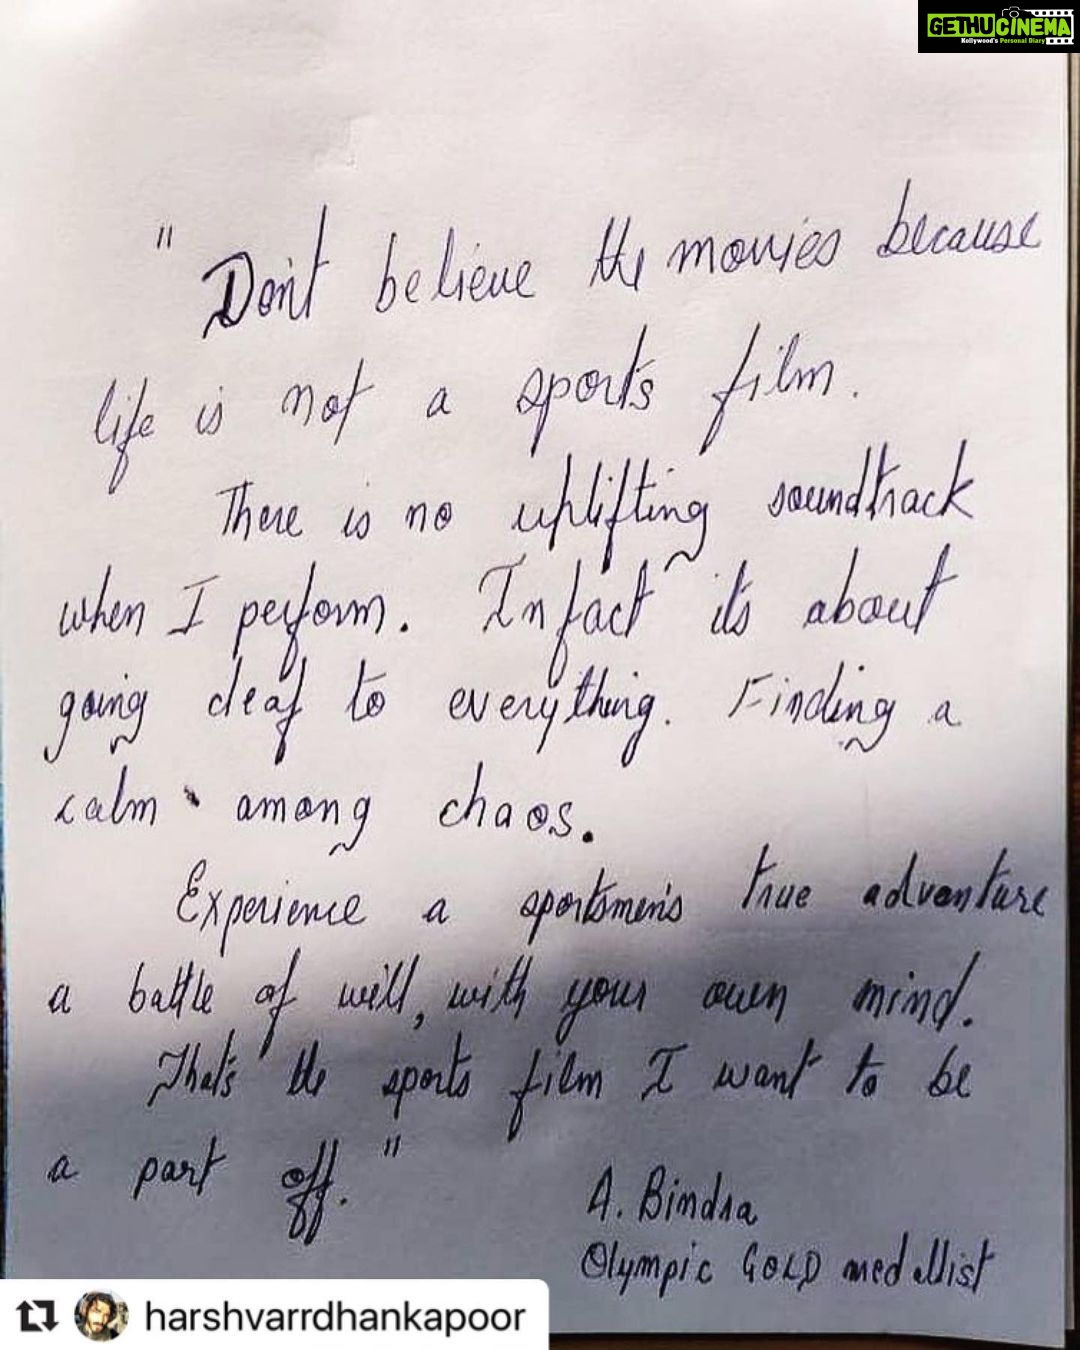 GETHUCINEMA
Kollywood's Personal Diary
" Don't believe the movies because
life is not a sports film.
There is no uplifting soundtrack
when I perform. Infact its about
going deaf to everything. Finding a
calm among chaos.
Experience a sportsmen's true adventure
a battle of will, with your own mind.
That's the sports film I want to be
a part off. "
A. Bindra
Olympic GOLD medallist
harshvarrdhankapoor